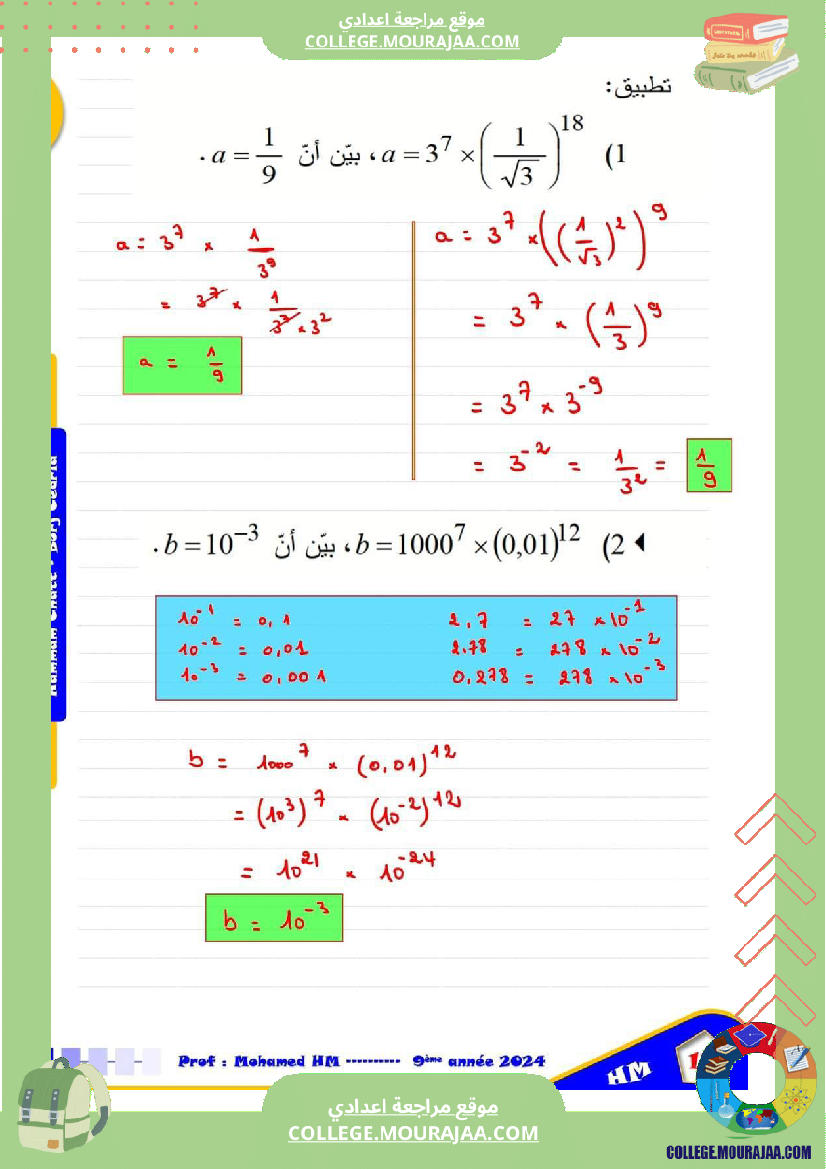 موقع مراجعة اعدادي
COLLEGE.MOURAJAA.COM
تطبيق:
1) a = 3⁷ × (1/√3)¹⁸ ، بيّن أنّ a = 1/9 .
a = 3⁷ × ((1/√3)²)⁹
= 3⁷ × (1/3)⁹
= 3⁷ × 3⁻⁹
= 3⁻² = 1/3² = 1/9
a = 3⁷ × 1/3⁹
= 3⁷ × 1/(3⁷ × 3²)
a = 1/9
2) b = 1000⁷ × (0,01)¹² ، بيّن أنّ b = 10⁻³ .
10⁻¹ = 0,1 2,7 = 27 × 10⁻¹
10⁻² = 0,01 2,78 = 278 × 10⁻²
10⁻³ = 0,001 0,278 = 278 × 10⁻³
b = 1000⁷ × (0,01)¹²
= (10³)⁷ × (10⁻²)¹²
= 10²¹ × 10⁻²⁴
b = 10⁻³
Prof : Mohamed HM ---------- 9ème année 2024
HM
موقع مراجعة اعدادي
COLLEGE.MOURAJAA.COM
COLLEGE.MOURAJAA.COM